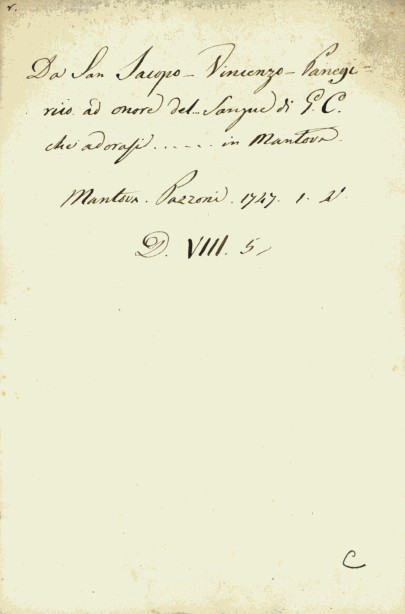 r.
Da San Jacopo - Vincenzo - Panegi-
rico ad onore del Sangue di G. C.
che adorasi ..... in Mantova.
Mantova. Pazzoni. 1747. 1. V.
D. VIII. 5
C